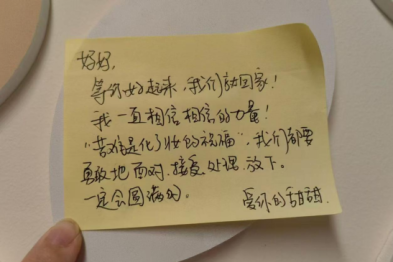 好好,
等你好起来,我们就回家!
我一直相信相信的力量!
"苦难是化了妆的祝福",我们都要
勇敢地面对、接受、处理、放下。
一定会圆满的。
爱你的甜甜.